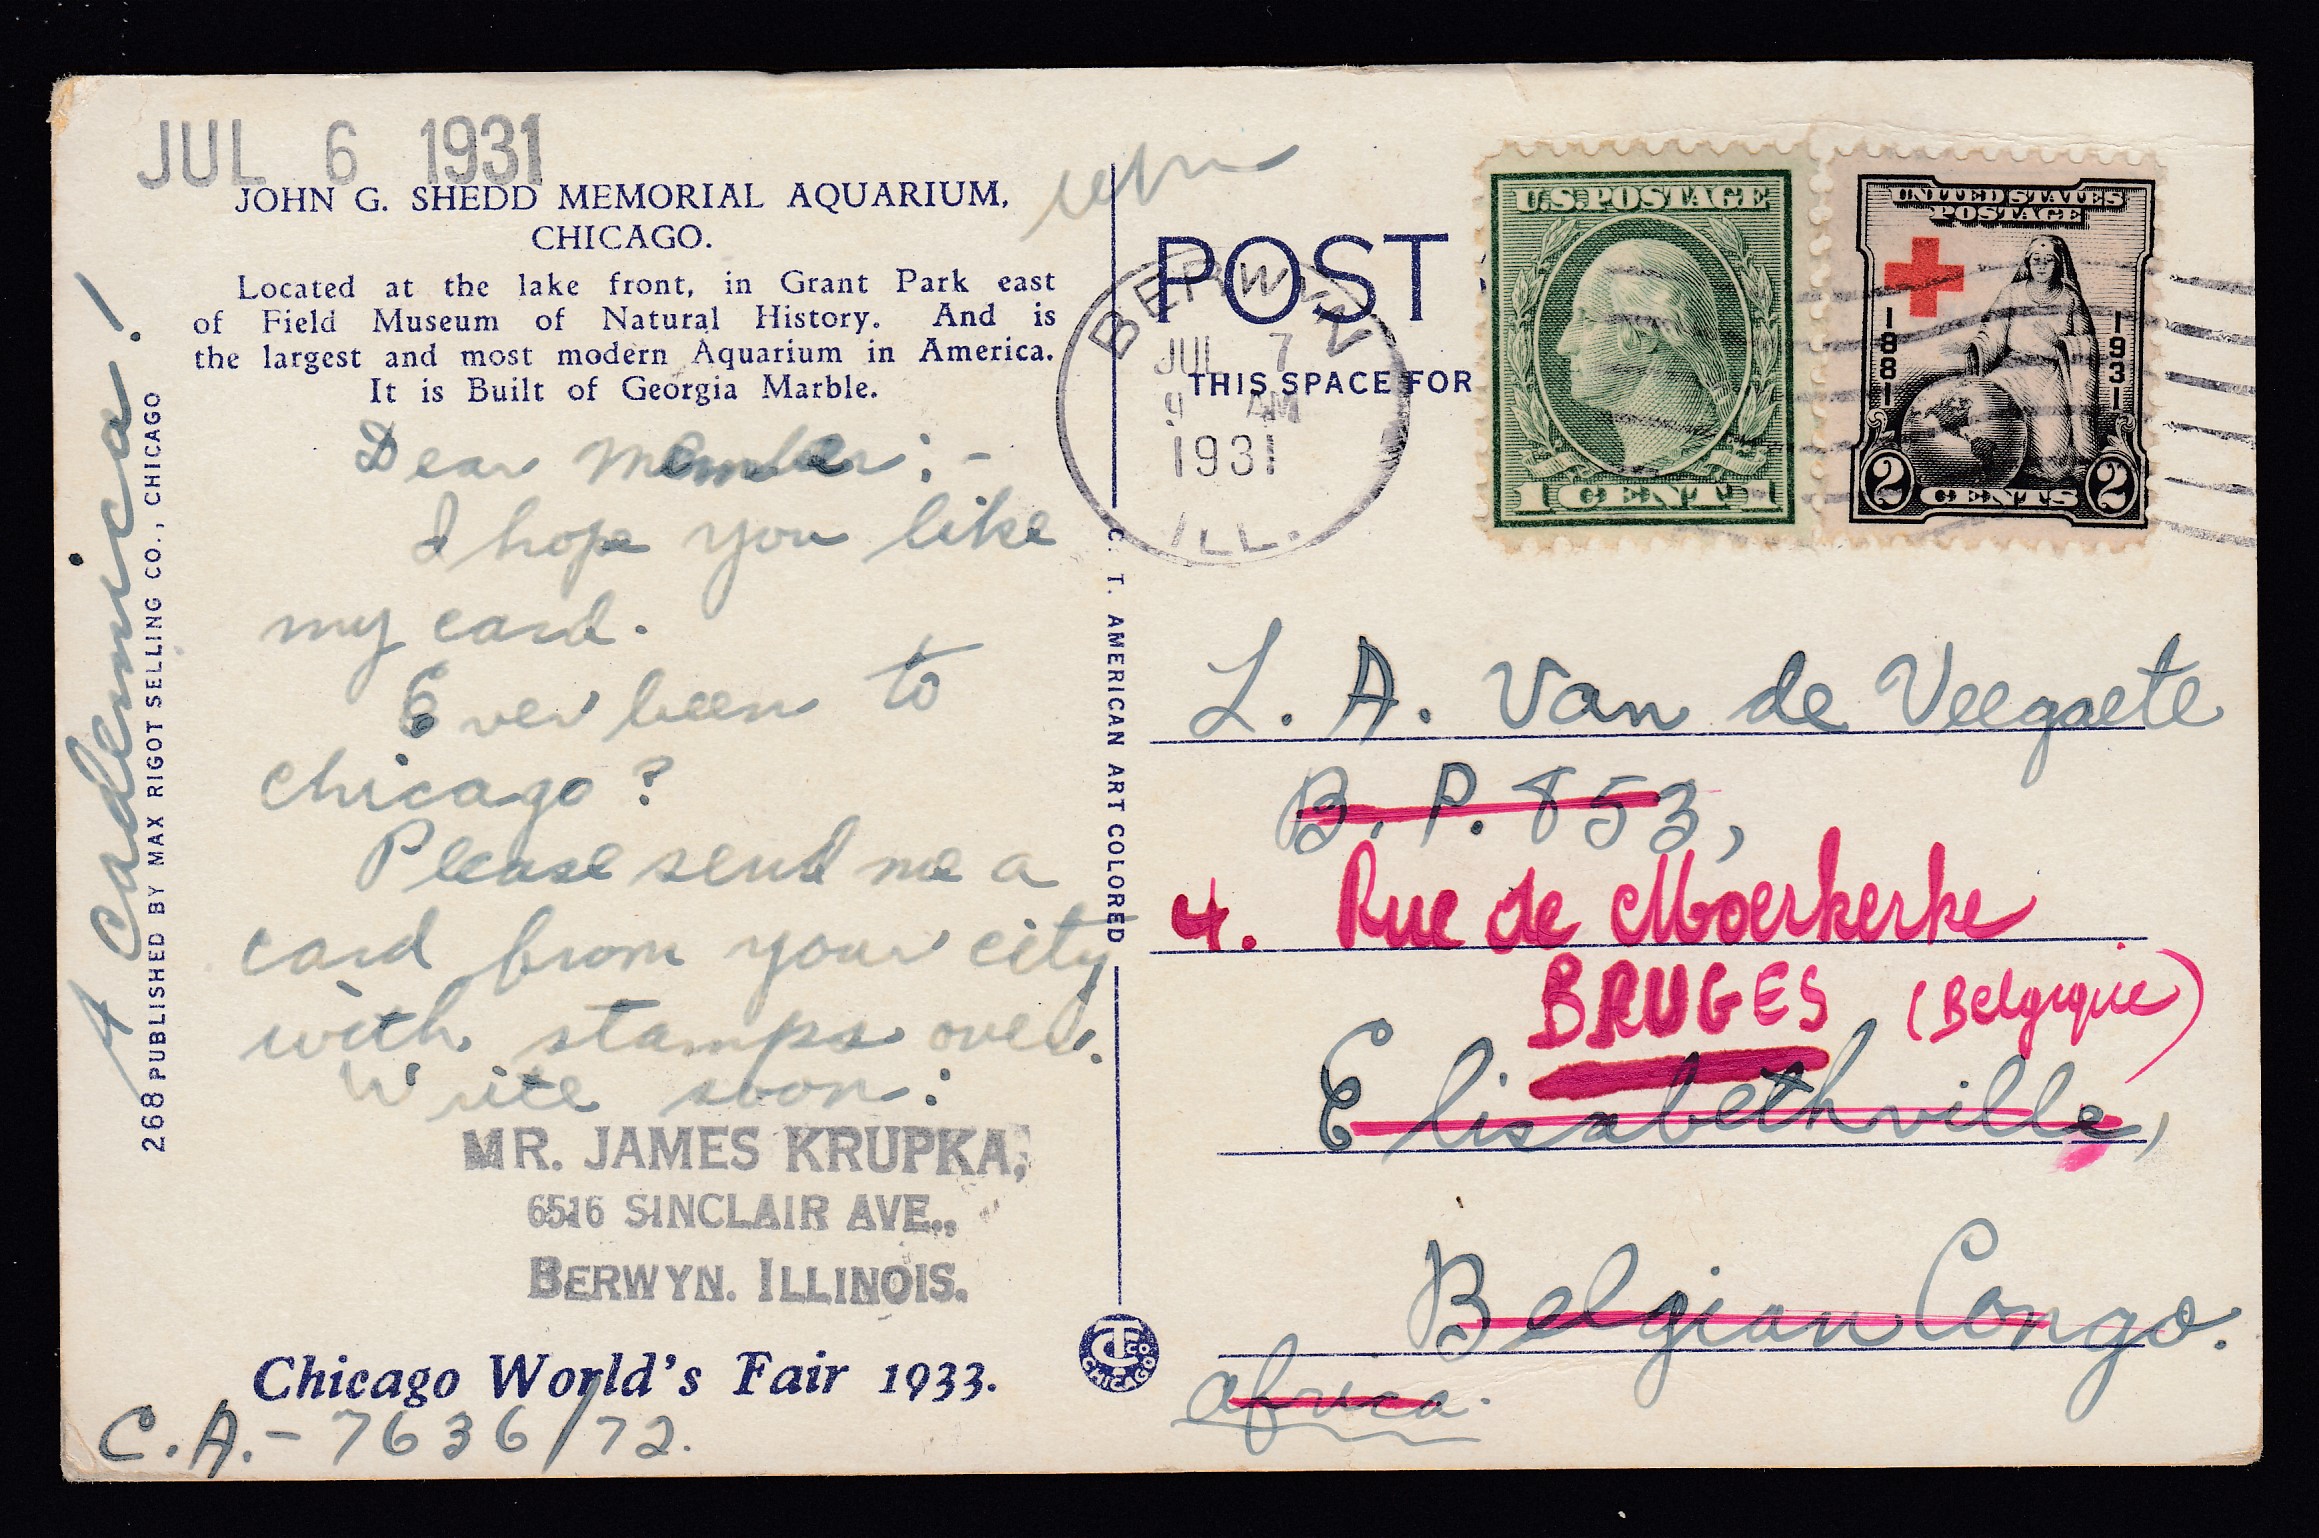 JUL 6 1931
JOHN G. SHEDD MEMORIAL AQUARIUM,
CHICAGO.
Located at the lake front, in Grant Park east
of Field Museum of Natural History. And is
the largest and most modern Aquarium in America.
It is Built of Georgia Marble.
Dear Member:-
I hope you like
my card.
Ever been to
Chicago?
Please send me a
card from your city
with stamps over.
Write soon:
MR. JAMES KRUPKA,
6516 SINCLAIR AVE.,
BERWYN. ILLINOIS.
Chicago World's Fair 1933.
C.A.- 7636/72.
A Cademica!
268 PUBLISHED BY MAX RIGOT SELLING CO., CHICAGO
C. T. AMERICAN ART COLORED
CT CO CHICAGO
POST
THIS SPACE FOR
BERWYN
JUL 7
9 AM
1931
ILL.
U.S. POSTAGE
1 CENT 1
UNITED STATES
POSTAGE
1881
1931
2 CENTS 2
L. A. Van de Veegaete
B. P. 853,
4. Rue de Moerkerke
BRUGES (Belgique)
Elisabethville,
Belgian Congo.
Africa.